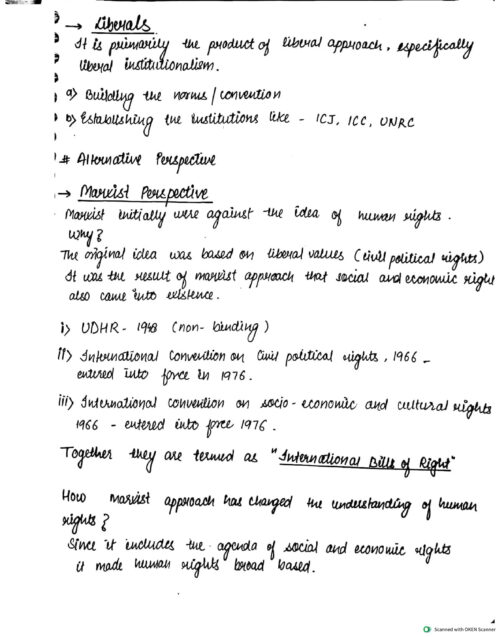 → Liberals
It is primarily the product of liberal approach, especifically
liberal institutionalism.
a) Building the norms/convention
b) Establishing the institutions like - ICJ, ICC, UNRC
# Alternative Perspective
→ Marxist Perspective
Marxist initially were against the idea of human rights.
Why?
The original idea was based on liberal values (civil political rights)
It was the result of marxist approach that social and economic right
also came into existence.
i) UDHR - 1948 (non-binding)
ii) International Convention on Civil political rights, 1966 -
entered into force in 1976.
iii) International convention on socio-economic and cultural rights
1966 - entered into force 1976.
Together they are termed as "International Bills of Right"
How marxist approach has changed the understanding of human
rights?
Since it includes the agenda of social and economic rights
it made human rights broad based.
Scanned with OKEN Scanner